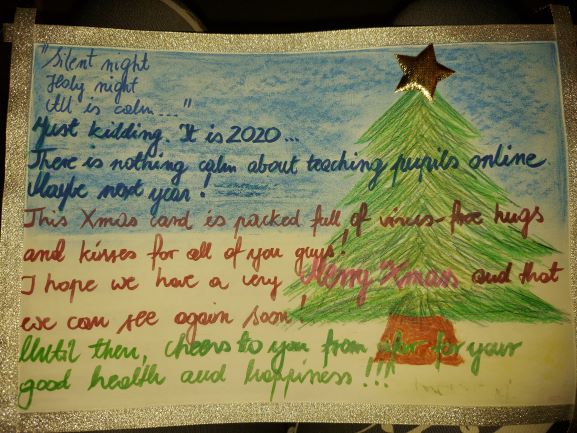 "Silent night
Holy night
All is calm..."
Just kidding. It is 2020...
There is nothing calm about teaching pupils online.
Maybe next year!
This Xmas card is packed full of virus-free hugs
and kisses for all of you guys!
I hope we have a very Merry Xmas and that
we can see again soon!
Until then, cheers to you from afar for your
good health and happiness!!!